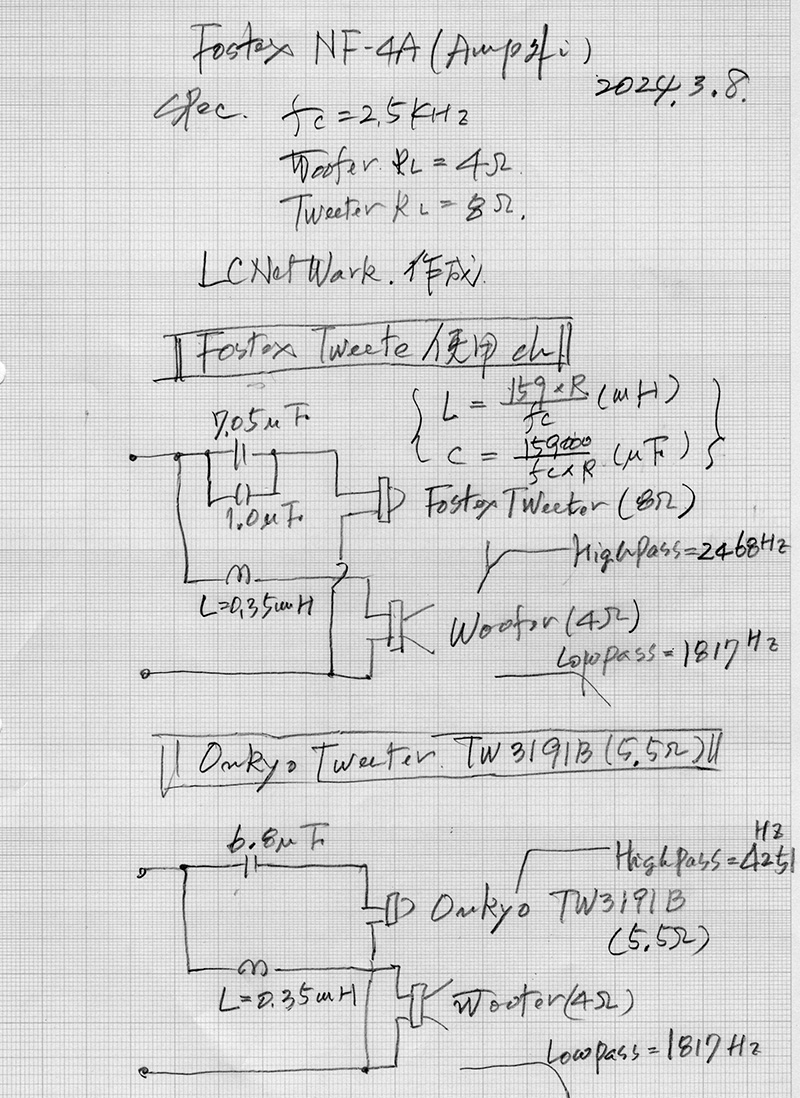 Fostex NF-4A (Amp
2024.3.8.
Spec. fc=2.5KHz
Woofer RL=4Ω
Tweeter RL=8Ω.
LC NetWork. 作成
Fostex Tweete 使用 ch
L = 159×R/fc (mH)
C = 159000/fc×R (μF)
7.05μF
1.0μF
Fostex Tweeter (8Ω)
HighPass=2468Hz
L=0.35mH
Woofer (4Ω)
Lowpass=1817Hz
Onkyo Tweeter. TW3191B (5.5Ω)
6.8μF
HighPass=4251Hz
Onkyo TW3191B
(5.5Ω)
L=0.35mH
Woofer (4Ω)
Lowpass=1817Hz